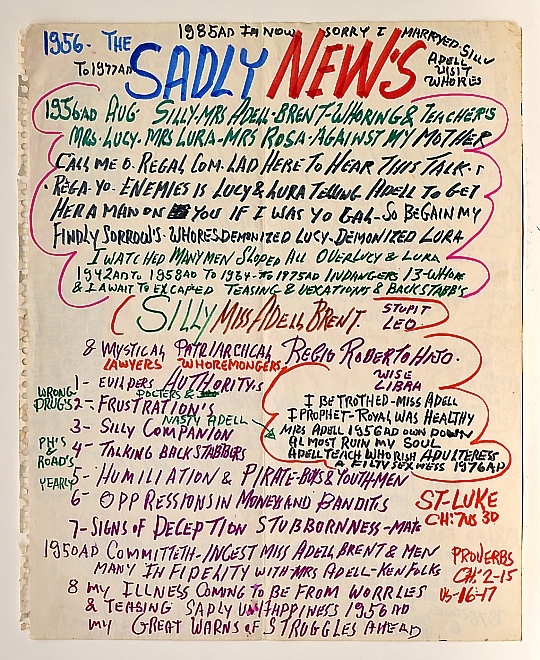 1985AD I'M NOW SORRY I MARRYED SILLY
1956- THE
ADELL
To 1977AD
VISIT
WHORIES
SADLY NEW'S
1956AD AUG SILLY-MRS ADELL-BRENT-WHORING & TEACHER'S
MRS. LUCY. MRS LURA-MRS ROSA-AGAINST MY MOTHER
CALL ME O. REGAL COM. LAD HERE TO HEAR THIS TALK.
REGA-YO. ENEMIES IS LUCY & LURA TELLING ADELL TO GET
HER A MAN ON YOU IF I WAS YO GAL-SO BEGAIN MY
FINDLY SORROW'S. WHORES DEMONIZED LUCY. DEMONIZED LURA
I WATCHED MANY MEN SLOPED ALL OVER LUCY & LURA
1942AD TO 1958AD TO 1964-TO 1975AD INDANGERS 13-WHORE
& I AWAIT TO EXCAPED TEASING & VEXATIONS & BACKSTABB'S
SILLY MISS ADELL BRENT.
STUPIT
LEO
8 MYSTICAL PATRIARCHCAL REGIO ROBERTO HIJO.
LAWYERS WHOREMONGERS
WISE
LIBRA
1- EVILDERS AUTHORITY.S
DOCTERS &
WRONG
DRUG'S
2- FRUSTRATION'S
NASTY ADELL
3- SILLY COMPANION
4- TALKING BACKSTABBERS
PH'S
& ROAD'S
YEARLY
I BE TROTHED-MISS ADELL
I PROPHET-ROYAL WAS HEALTHY
MRS ADELL 1956AD OWN DOWN
ALMOST RUIN MY SOUL
ADELL TEACH WHORISH ADULTERESS
A FILTY SEX MESS 1976AD
5- HUMILIATION & PIRATE-BOYS & YOUTH MEN
6- OPPRESSIONS IN MONEY AND BANDITS
ST-LUKE
CH: 7 VS 30
7-SIGNS OF DECEPTION STUBBORNNESS-MATE
1950AD COMMITTETH-INCEST MISS ADELL BRENT & MEN
MANY INFIDELITY WITH MRS ADELL-KENFOLKS
PROVERBS
CH: 2-15
VS-16-17
8 MY ILLNESS COMING TO BE FROM WORRLES
& TEASING SADLY UNHAPPINESS 1956 AD
MY GREAT WARNS OF STRUGGLES AHEAD